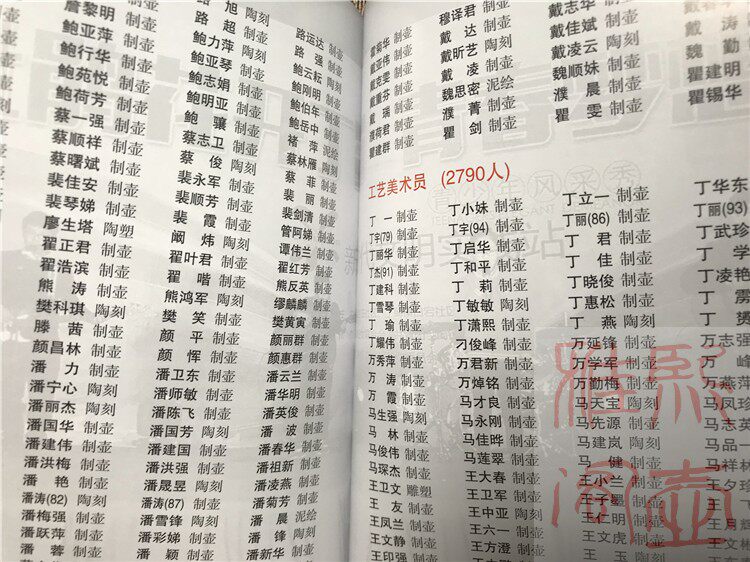 詹黎明 制壶 路 旭 陶刻 路运达 制壶
鲍亚萍 制壶 路 超 制壶 路 强 制壶
鲍行华 制壶 鲍力萍 陶刻 鲍云耘 陶刻
鲍苑悦 制壶 鲍亚琴 制壶 鲍刚明 制壶
鲍荷芳 制壶 鲍志娟 制壶 鲍伯年 制壶
蔡一强 制壶 鲍明亚 制壶 鲍岳中 泥绘
蔡顺祥 制壶 鲍 骧 制壶 褚 萍 陶刻
蔡曙斌 制壶 蔡志卫 制壶 蔡林雁 陶刻
裴佳安 制壶 蔡 俊 陶刻 蔡 菲 制壶
裴琴娣 制壶 裴永军 制壶 裴 丽 制壶
廖生塔 陶塑 裴顺芳 制壶 裴剑清 制壶
翟正君 制壶 裴 霞 制壶 管阿娣 制壶
翟浩滨 制壶 阚 炜 陶刻 谭伟兰 制壶
熊 涛 制壶 翟叶君 制壶 翟红芳 制壶
樊科琪 陶刻 翟 喈 制壶 熊反英 制壶
滕 茜 制壶 熊鸿军 陶刻 缪麟麟 制壶
颜昌林 制壶 樊 笑 制壶 樊黄寅 制壶
潘 力 制壶 颜 平 制壶 颜丽群 制壶
潘宁心 陶刻 颜 恽 制壶 颜惠群 制壶
潘丽杰 陶刻 潘卫东 制壶 潘云兰 制壶
潘国华 制壶 潘师敏 制壶 潘华明 制壶
潘建伟 制壶 潘陈飞 制壶 潘英俊 制壶
潘洪梅 制壶 潘国芳 陶刻 潘 波 制壶
潘 艳 制壶 潘建国 制壶 潘春华 制壶
潘涛(82) 陶刻 潘洪强 制壶 潘祖新 制壶
潘梅强 制壶 潘晟昱 陶刻 潘凌燕 制壶
潘跃萍 制壶 潘涛(87) 制壶 潘菊芳 制壶
潘 蓉 制壶 潘雪锋 陶刻 潘 晨 泥绘
潘彩娣 制壶 潘 锋 制壶
潘 颖 制壶 潘新华 制壶
制壶 穆译君 制壶 戴志华 制壶
戴亚伟 制壶 戴 达 制壶 戴佳斌 制壶 戴 涛
戴雯 制壶 戴昕艺 陶刻 戴凌云 陶刻 魏 勤
戴重芬 制壶 戴 凌 制壶 魏顺妹 制壶 瞿建明
戴 瑞 制壶 魏思密 泥绘 濮 晨 制壶 瞿锡华
濮荷君 制壶 濮 菁 制壶 瞿 雯 制壶
瞿建群 制壶 瞿 剑 制壶
工艺美术员 (2790人)
丁 一 制壶 丁小妹 制壶 丁立一 制壶 丁华东
丁宇(79) 制壶 丁宇(94) 制壶 丁丽(86) 制壶 丁丽(93)
丁丽华 制壶 丁启华 制壶 丁 君 制壶 丁武珍
丁杰(91) 制壶 丁和平 制壶 丁 佳 制壶
丁建科 制壶 丁 莉 制壶 丁晓俊 制壶 丁凌艳
丁雪琴 制壶 丁敏敏 陶刻 丁惠松 制壶 丁 雳
丁 瑜 制壶 丁潇熙 制壶 丁 燕 陶刻 丁
丁耀伟 制壶 刁俊峰 制壶 万延锋 制壶 万志强
万秀萍 制壶 万君新 制壶 万学军 制壶 万 峰
万 涛 制壶 万焯铭 制壶 万勤梅 制壶 万燕
万 霞 制壶 马才良 制壶 马天宝 陶刻 马凤珍
马生强 陶刻 马永刚 制壶 马先源 制壶 马志英
马 林 制壶 马佳晔 制壶 马建岚 陶刻 马品一
马俊伟 制壶 马莲翠 制壶 马 健 制壶 马祥林
马琛杰 制壶 王大春 制壶 王小兰 制壶 王夕珍
王卫文 雕塑 王卫军 制壶 王子墨 制壶
王 友 制壶 王中亚 陶刻 王仁明 制壶
王凤兰 制壶 王六一 制壶 王文虎 制壶
王文静 制壶 王方澄 制壶 王 玉 陶刻
王印强 制壶
雅熙
陶壶